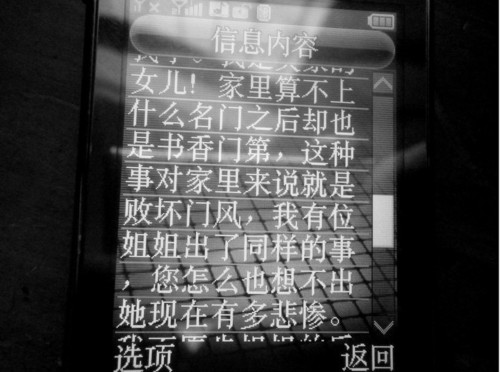 信息内容
女儿！家里算不上
什么名门之后却也
是书香门第，这种
事对家里来说就是
败坏门风，我有位
姐姐出了同样的事
，您怎么也想不出
她现在有多悲惨。
选项 返回